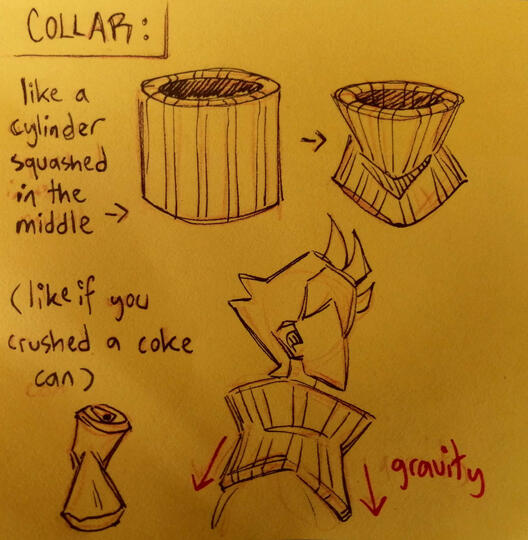 COLLAR:
like a
cylinder
squashed
in the
middle
(like if you
crushed a coke
can)
gravity